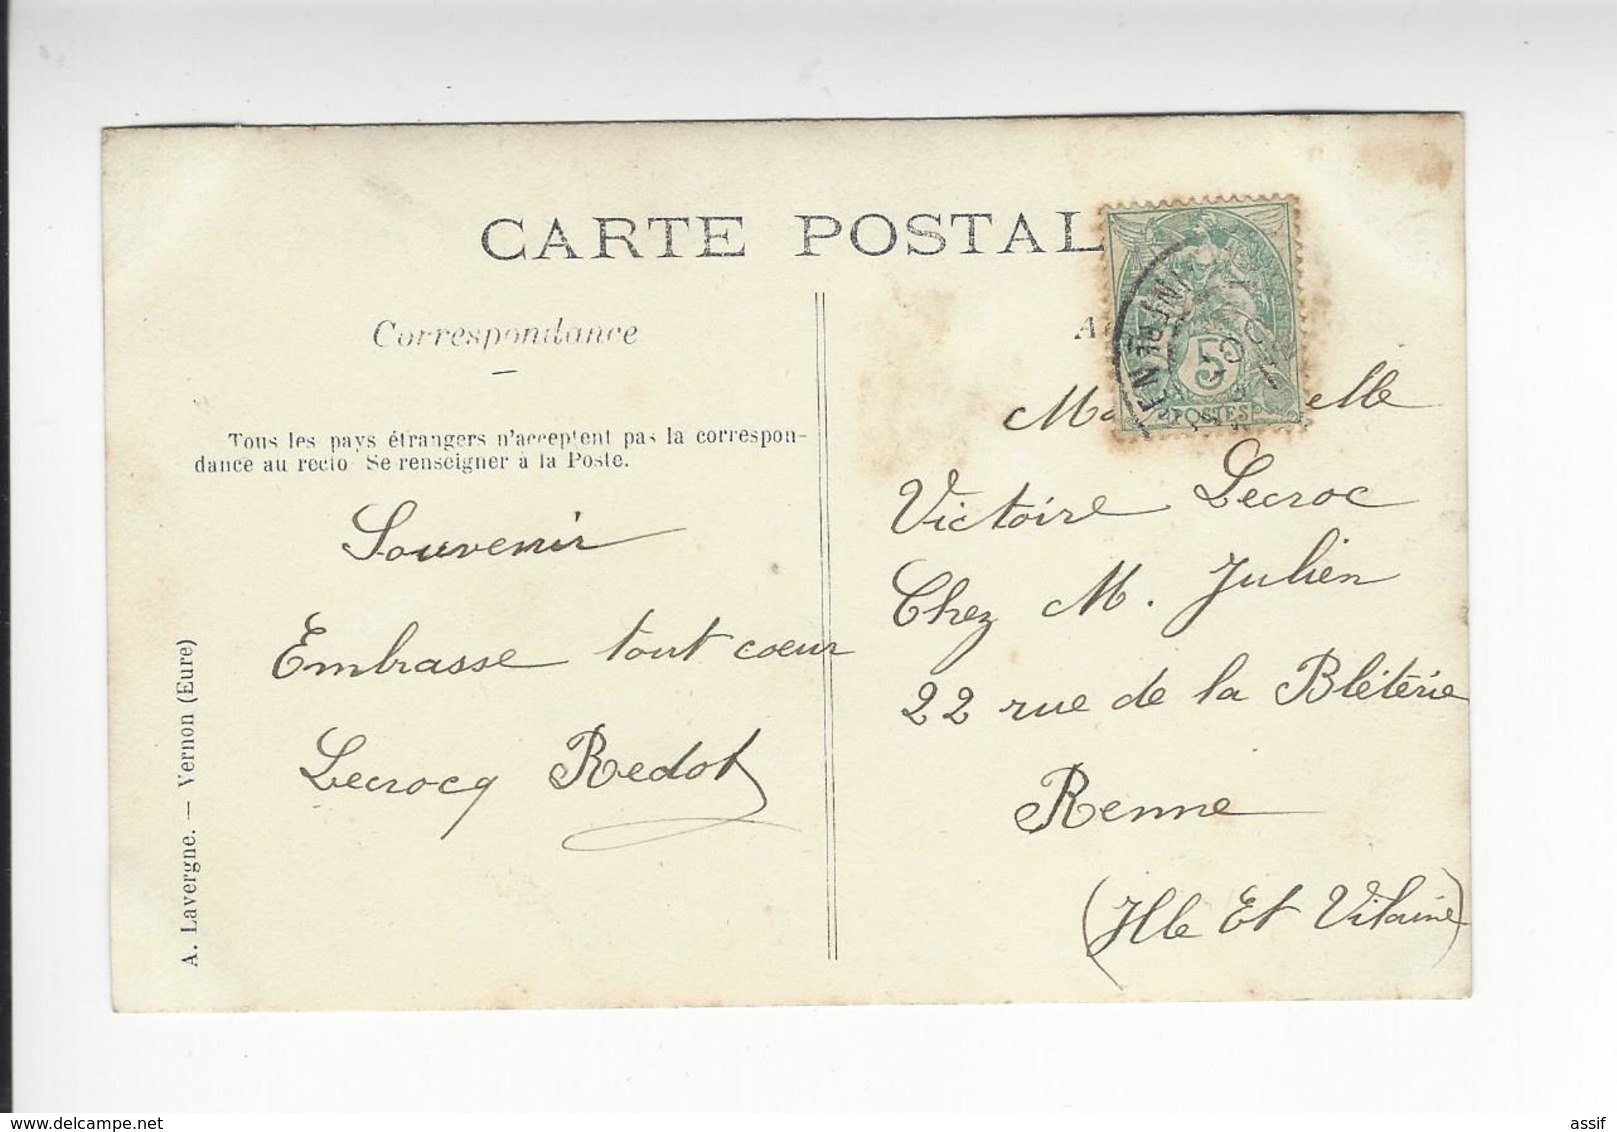 CARTE POSTAL
Correspondance
Tous les pays étrangers n'acceptent pas la correspon-
dance au recto Se renseigner à la Poste.
Souvenir
Embrasse tout coeur
Lecrocq Redot
A. Lavergne. — Vernon (Eure)
5
POSTES
Victoire Lecroc
Chez M. Julien
22 rue de la Blèterie
Renne
(Ille Et Vilaine)
www.delcampe.net
assif